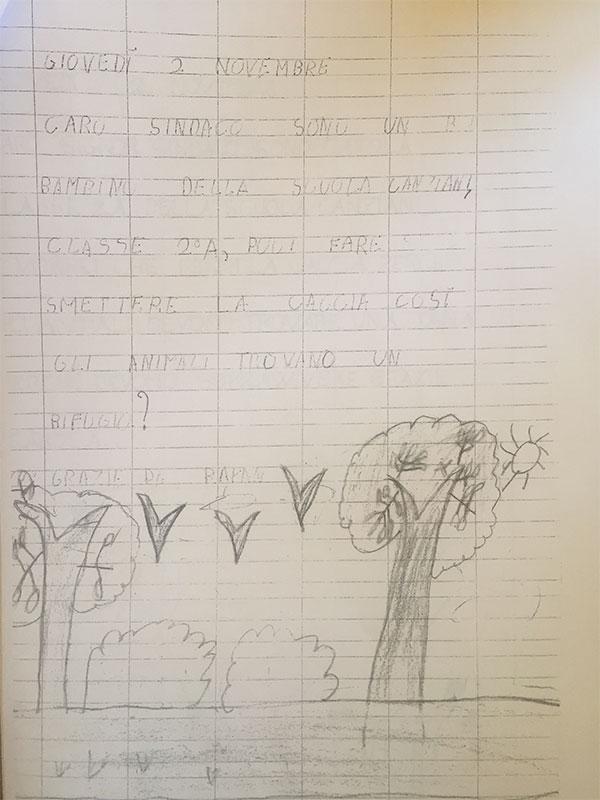 GIOVEDÌ 2 NOVEMBRE
CARO SINDACO SONO UN B
BAMBINO DELLA SCUOLA CANZIANI,
CLASSE 2°A, PUOI FARE
SMETTERE LA CACCIA COSÌ
GLI ANIMALI TROVANO UN
RIFUGIO?
GRAZIE DA